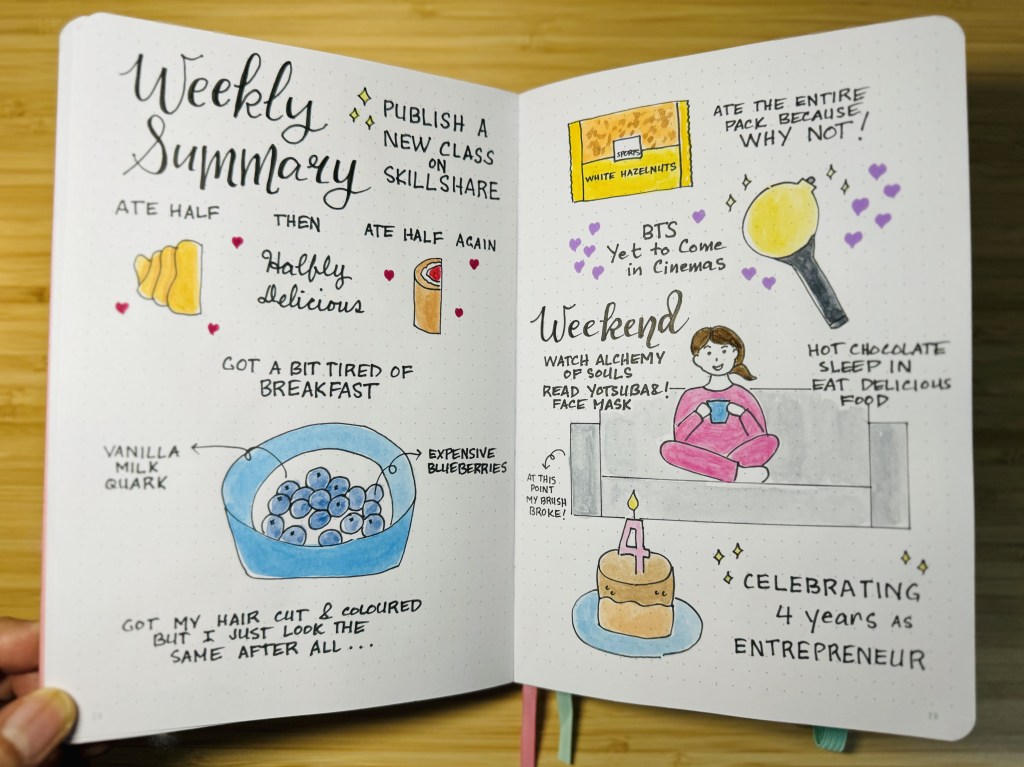 Weekly
Summary
PUBLISH A
NEW CLASS
ON
SKILLSHARE
ATE HALF
THEN
Halfly
Delicious
ATE HALF AGAIN
GOT A BIT TIRED OF
BREAKFAST
VANILLA
MILK
QUARK
EXPENSIVE
BLUEBERRIES
GOT MY HAIR CUT & COLOURED
BUT I JUST LOOK THE
SAME AFTER ALL...
SPORTS
WHITE HAZELNUTS
ATE THE ENTIRE
PACK BECAUSE
WHY NOT!
BTS
Yet to Come
in Cinemas
Weekend
WATCH ALCHEMY
OF SOULS
READ YOTSUBA&!
FACE MASK
HOT CHOCOLATE
SLEEP IN
EAT DELICIOUS
FOOD
AT THIS
POINT
MY BRUSH
BROKE!
4
CELEBRATING
4 years AS
ENTREPRENEUR